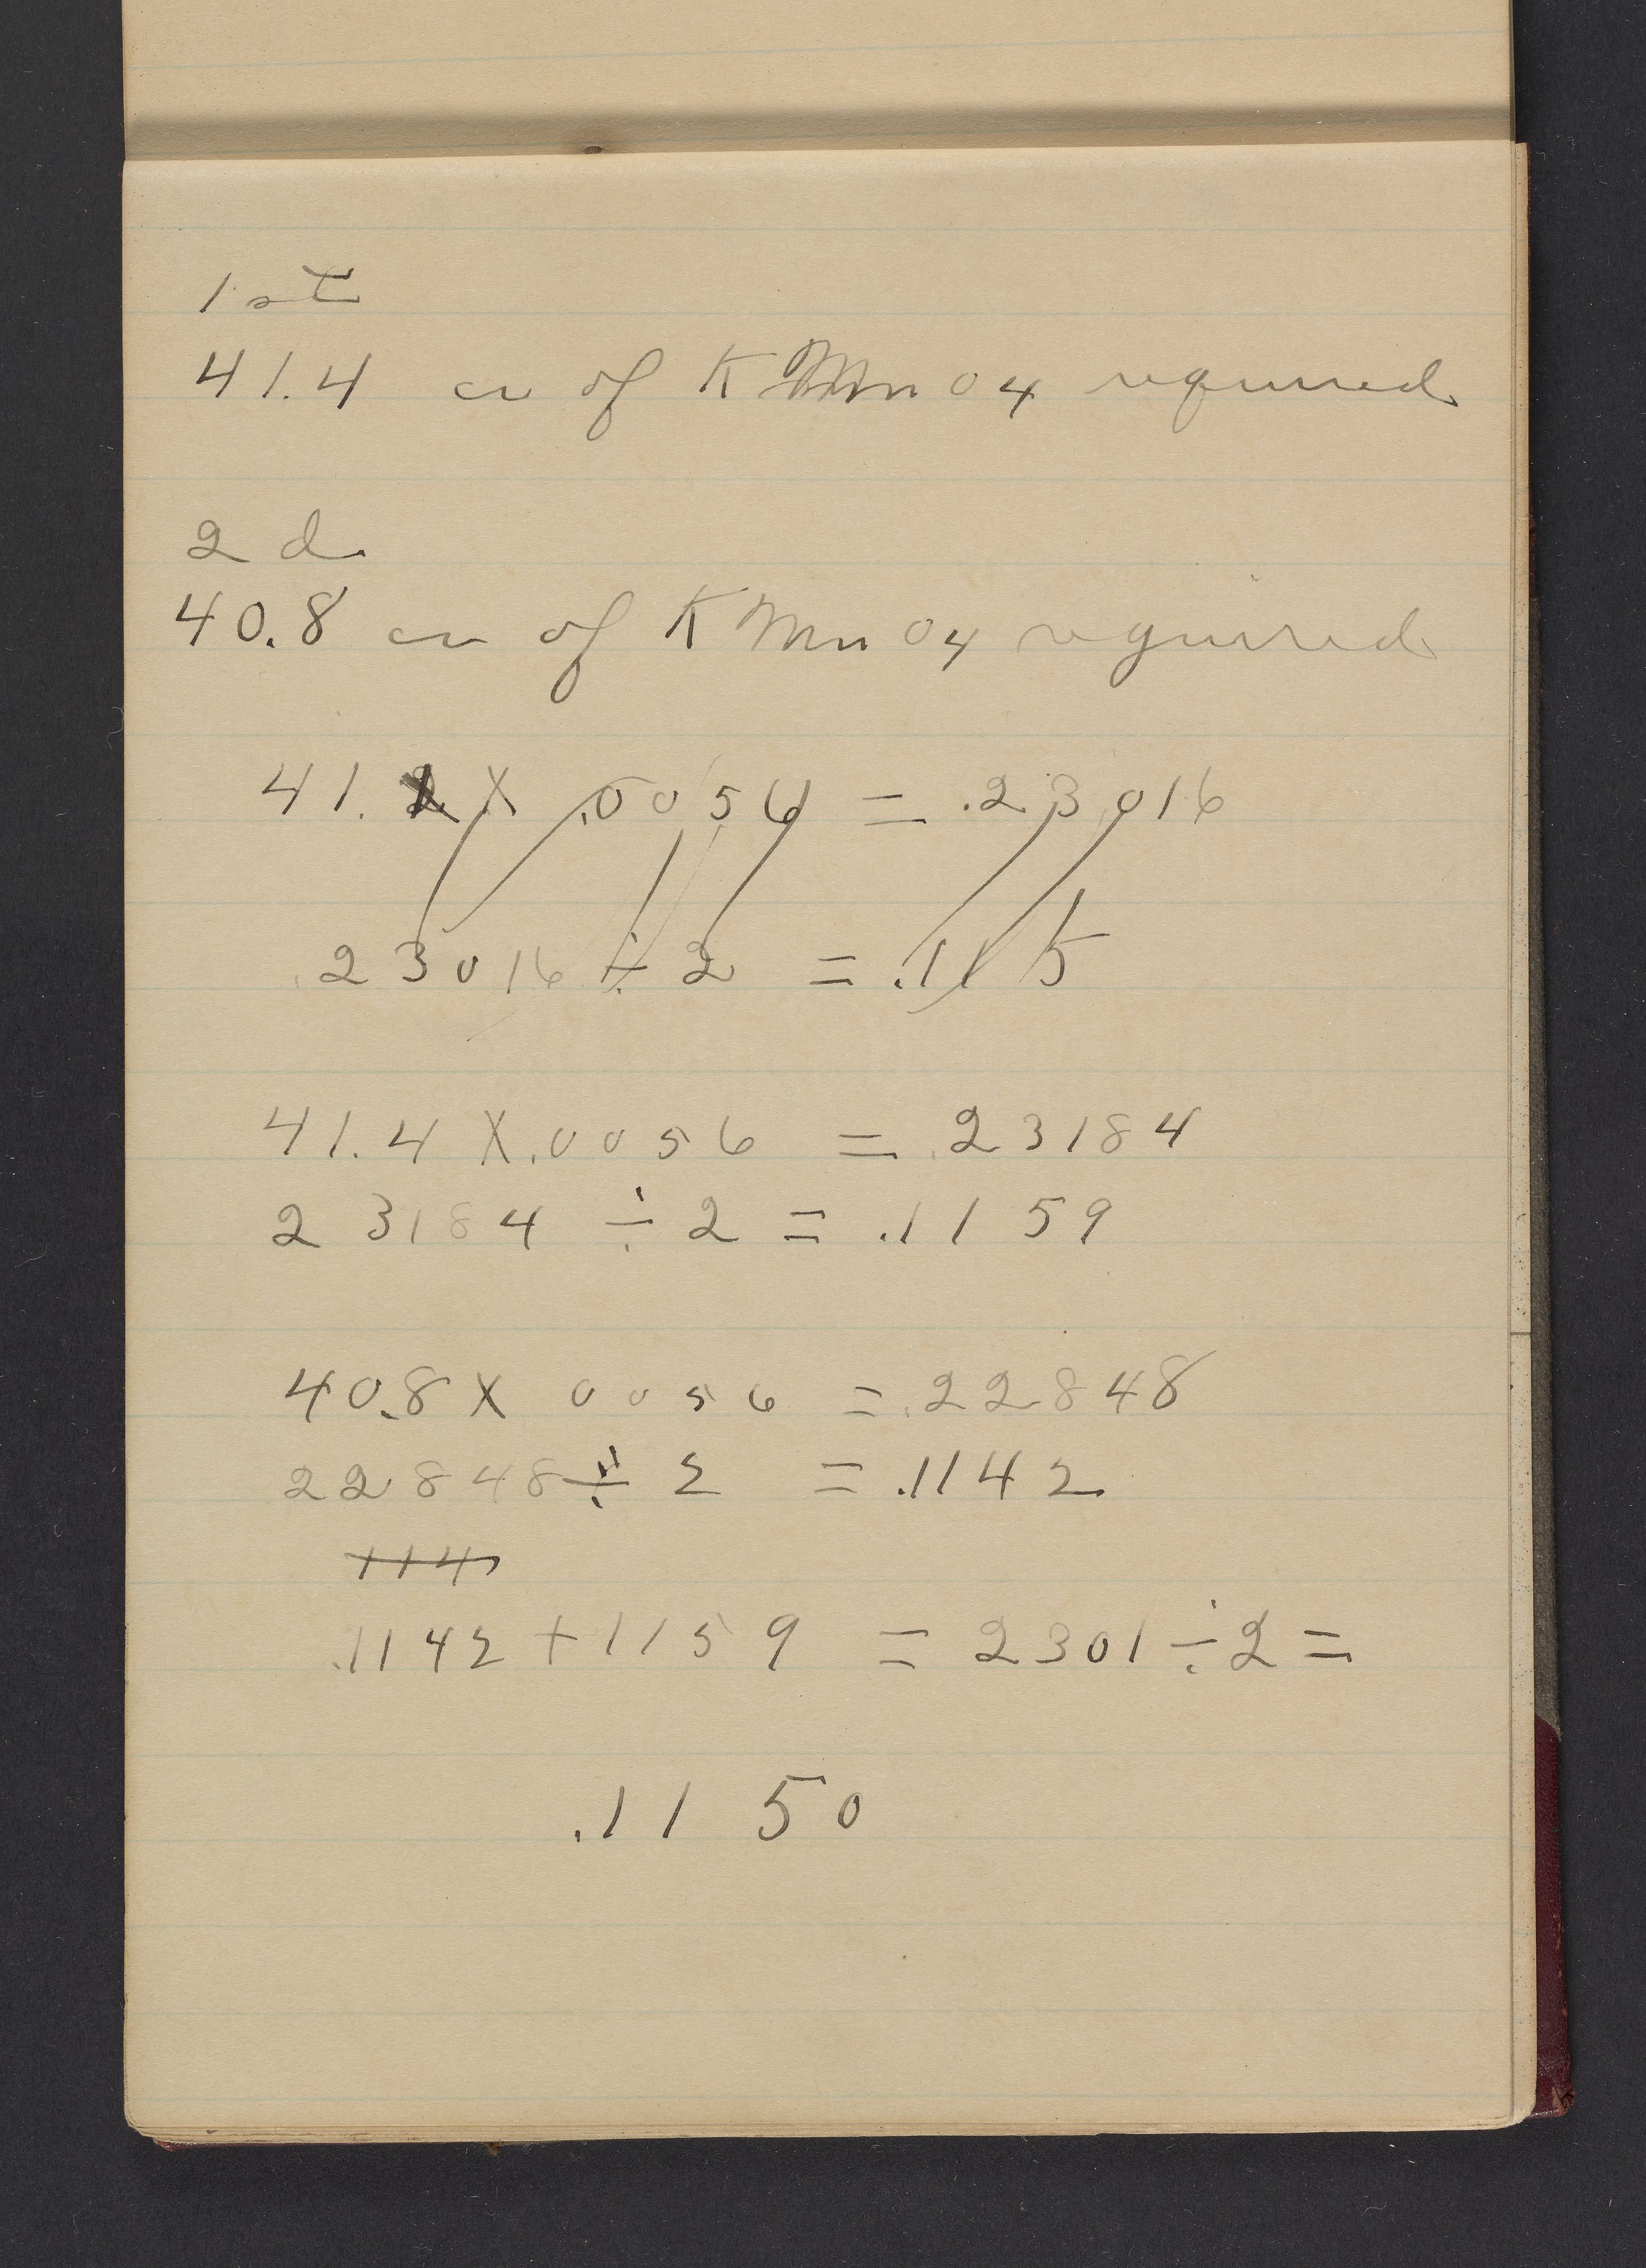 1st
41.4 cc of KMnO4 required
2d
40.8 cc of KMnO4 required
41.1 X .0056 = .23016
.23016 ÷ 2 = .115
41.4 X .0056 = .23184
23184 ÷ 2 = .1159
40.8 X 0056 = .22848
22848 ÷ 2 = .1142
114
.1142 + 1159 = 2301 ÷ 2 =
.1150